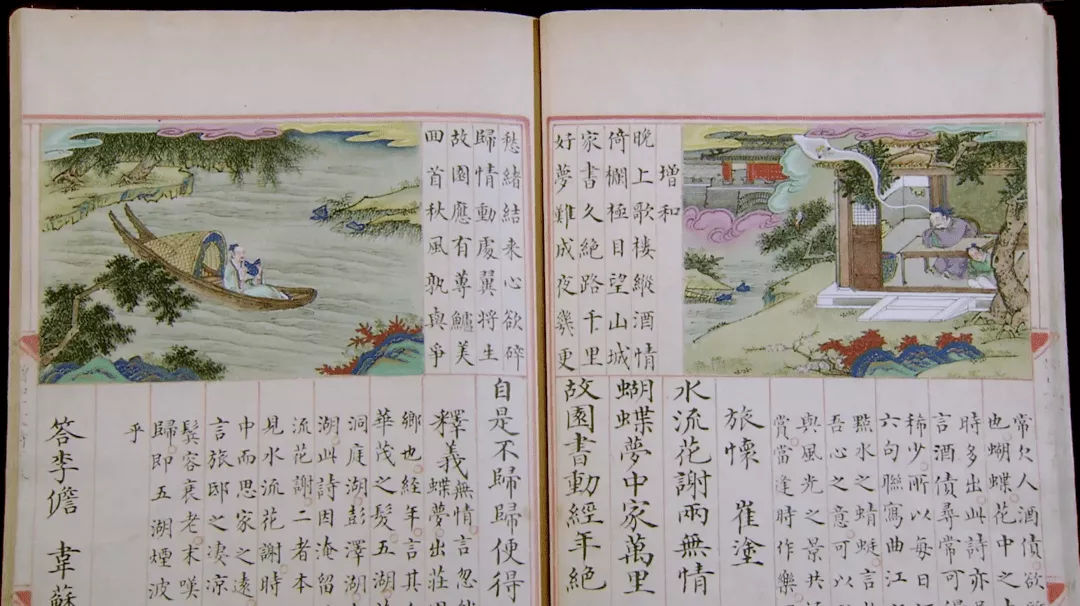 增和
晚上歌樓縱酒情
倚欄極目望山城
家書久絶路千里
好夢難成夜幾更
常欠人酒債欲
也蝴蝶花中之
時多出此詩亦
言酒債尋常可
稀少所以每日
六句聯寫曲江
點水之蜻蜓言
吾心之意可以
與風光之景共
賞當逢時作樂
旅懷 崔塗
水流花謝兩無情
蝴蝶夢中家萬里
故園書動經年絶
愁緒結來心欲碎
歸情動處翼將生
故園應有蓴鱸美
囬首秋風孰與爭
自是不歸歸便得
釋義無情言忽
蝶夢出莊
鄉也經年言其
華茂之髮五湖
洞庭湖彭澤湖
湖此詩因淹留
流花謝二者本
見水流花謝時
中而思家之遠
言旅邸之凄凉
鬂容衰老末咲
歸即五湖煙波
乎
答李儋 韋蘇